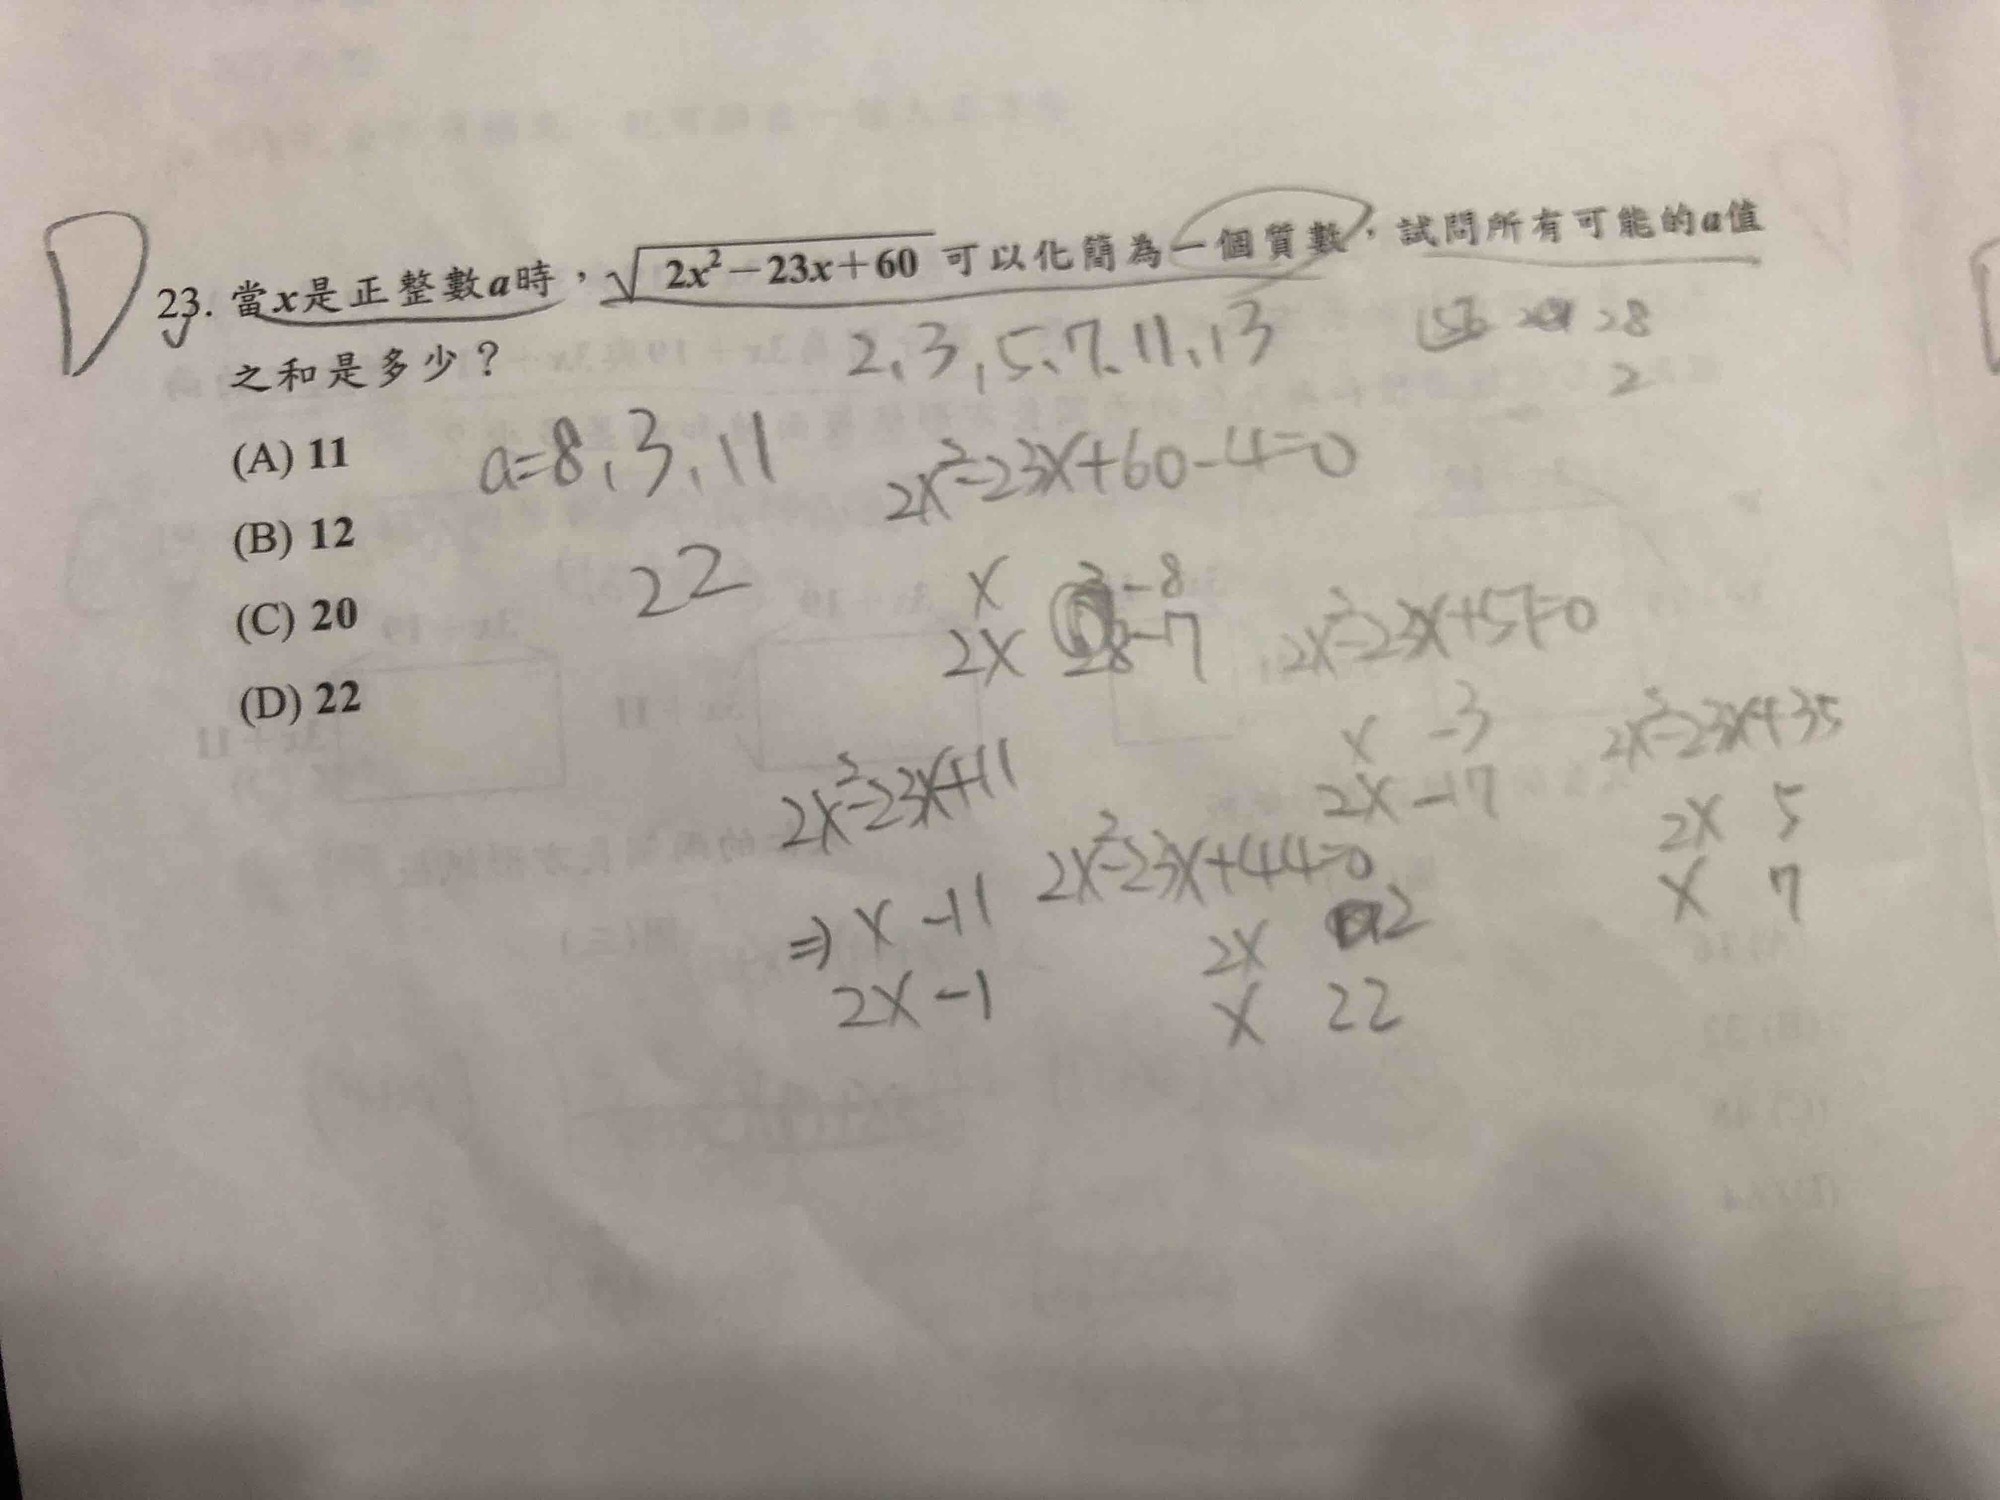 23. 當x是正整數a時，√2x²－23x＋60 可以化簡為一個質數，試問所有可能的a值
之和是多少？
2、3、5、7、11、13
28
2
(A) 11
a=8、3、11
2x²-23x+60-4=0
(B) 12
22
x -8
2x -7
(C) 20
(D) 22
2x²-23x+57=0
x -3
2x -17
2x²-23x+35
2x 5
x 7
2x²-23x+11
⇒ x -11
2x -1
2x²-23x+44=0
2x 2
x 22